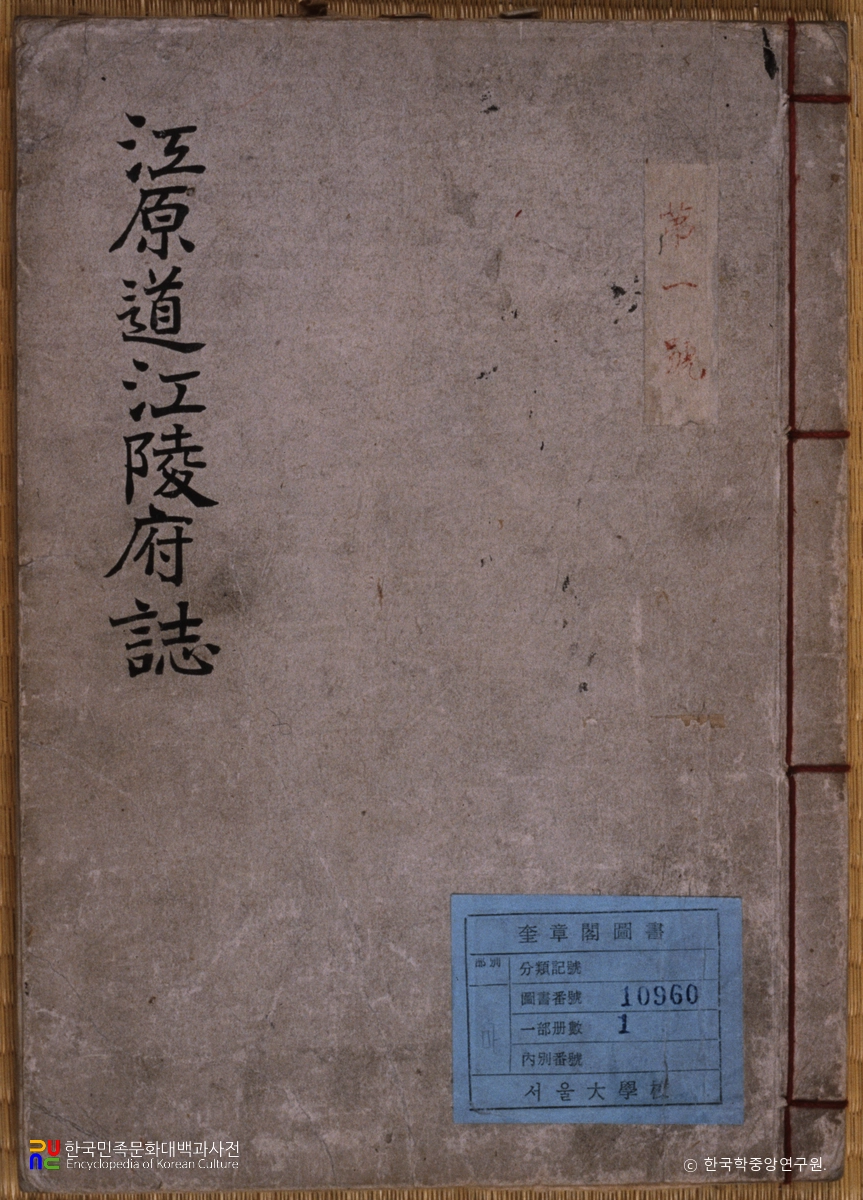 江原道江陵府誌
第一號
奎章閣圖書
部別
分類記號
圖書番號 10960
一部册數 1
內別番號
서울大學校
한국민족문화대백과사전
Encyclopedia of Korean Culture
ⓒ 한국학중앙연구원.